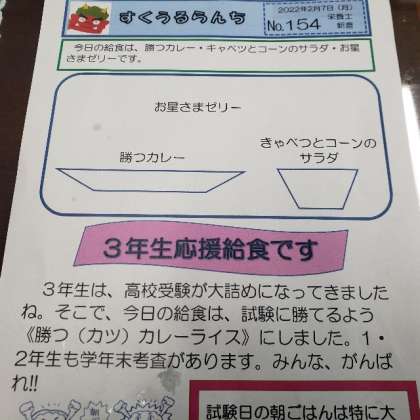 すくうるらんち
2022年2月7日（月）
No.154
栄養士
今日の給食は、勝つカレー・キャベツとコーンのサラダ・お星
さまゼリーです。
お星さまゼリー
勝つカレー
きゃべつとコーンの
サラダ
３年生応援給食です
３年生は、高校受験が大詰めになってきました
ね。そこで、今日の給食は、試験に勝てるよう
《勝つ（カツ）カレーライス》にしました。１・
２年生も学年末考査があります。みんな、がんば
れ!!
試験日の朝ごはんは特に大